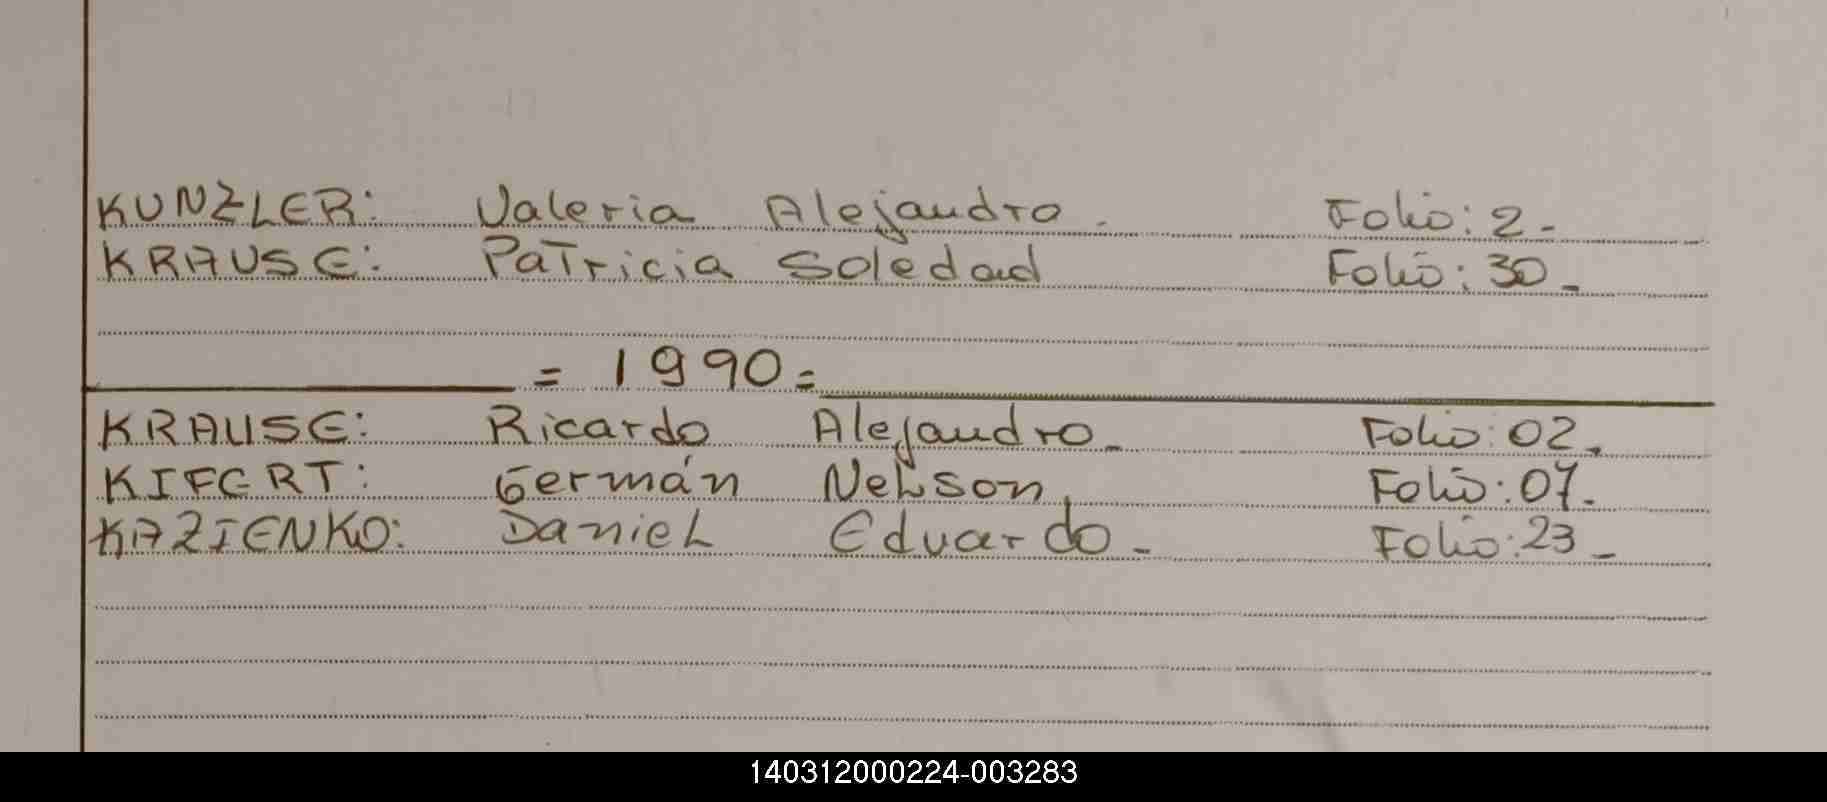 KUNZLER: Valeria Alejandro. Folio: 2.-
KRAUSE: Patricia Soledad Folio: 30.-
= 1990 =
KRAUSE: Ricardo Alejandro.- Folio: 02.-
KIFERT: Germán Nelson. Folio: 07.-
KAZIENKO: Daniel Eduardo.- Folio: 23.-
140312000224-003283